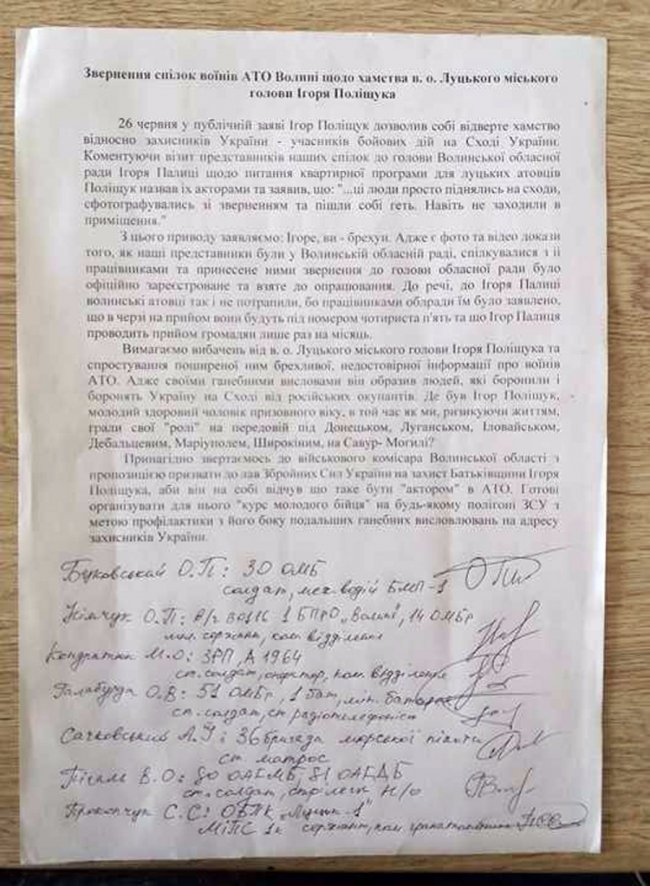 Звернення спілок воїнів АТО Волині щодо хамства в. о. Луцького міського
голови Ігоря Поліщука
26 червня у публічній заяві Ігор Поліщук дозволив собі відверте хамство
відносно захисників України - учасників бойових дій на Сході України.
Коментуючи візит представників наших спілок до голови Волинської обласної
ради Ігоря Палиці щодо питання квартирної програми для луцьких атовців
Поліщук назвав їх акторами та заявив, що: "...ці люди просто піднялись на сходи,
сфотографувались зі зверненням та пішли собі геть. Навіть не заходили в
приміщення."
З цього приводу заявляємо: Ігоре, ви - брехун. Адже є фото та відео докази
того, як наші представники були у Волинській обласній раді, спілкувалися з її
працівниками та принесене ними звернення до голови обласної ради було
офіційно зареєстроване та взяте до опрацювання. До речі, до Ігоря Палиці
волинські атовці так і не потрапили, бо працівниками облради їм було заявлено,
що в черзі на прийом вони будуть під номером чотириста п'ять та що Ігор Палиця
проводить прийом громадян лише раз на місяць.
Вимагаємо вибачень від в. о. Луцького міського голови Ігоря Поліщука та
спростування поширеної ним брехливої, недостовірної інформації про воїнів
АТО. Адже своїми ганебними висловами він образив людей, які боронили і
боронять Україну на Сході від російських окупантів. Де був Ігор Поліщук,
молодий здоровий чоловік призовного віку, в той час як ми, ризикуючи життям,
грали свої "ролі" на передовій під Донецьком, Луганськом, Іловайськом,
Дебальцевим, Маріуполем, Широкіним, на Савур- Могилі?
Принагідно звертаємось до військового комісара Волинської області з
пропозицією призвати до лав Збройних Сил України на захист Батьківщини Ігоря
Поліщука, аби він на собі відчув що таке бути "актором" в АТО. Готові
організувати для нього "курс молодого бійця" на будь-якому полігоні ЗСУ з
метою профілактики з його боку подальших ганебних висловлювань на адресу
захисників України.
О.П: 30 ОМБ
солдат, мех. водій БМП-1
Німчук О.П: В/ч 1 БПРО „Волинь", 14 ОМБр
мол. сержант, ком. відділення
М.О: ЗРП, А 1964
ст. солдат, оператор, ком. відділення
Галабурда О.В: 51 ОМБр, 1 бат,
ст. солдат, ст радіотелефоніст
Сачковський А. 36 бригада морської піхоти
ст матрос
В.О: 80 81
ст. солдат,
Прокопчук С.С:
сержант, ком.